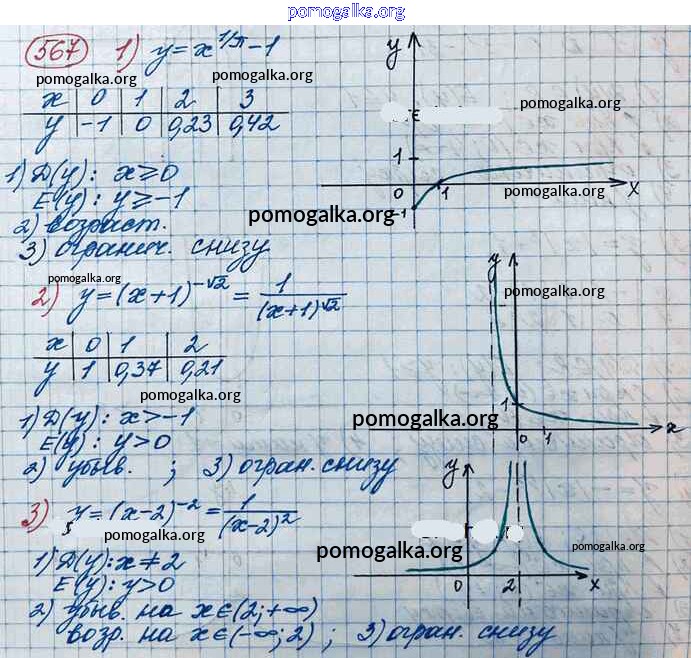 pomogalka.org
567 1) y = x^(1/π) - 1
pomogalka.org
x | 0 | 1 | 2 | 3
y | -1 | 0 | 0,23 | 0,42
1) D(y): x ≥ 0
E(y): y ≥ -1
2) возраст.
3) огранич. снизу
y
pomogalka.org
1
0 1 x
-1
pomogalka.org
pomogalka.org
pomogalka.org
2) y = (x+1)^(-√2) = 1/(x+1)^(√2)
x | 0 | 1 | 2
y | 1 | 0,37 | 0,21
pomogalka.org
1) D(y): x > -1
E(y): y > 0
2) убыв. ; 3) огран. снизу
y
pomogalka.org
1
0 1 x
pomogalka.org
3) y = (x-2)^(-2) = 1/(x-2)^2
1) D(y): x ≠ 2
E(y): y > 0
2) убыв. на x∈(2;+∞)
возр. на x∈(-∞;2) ; 3) огран. снизу
y
0 2 x
pomogalka.org
pomogalka.org